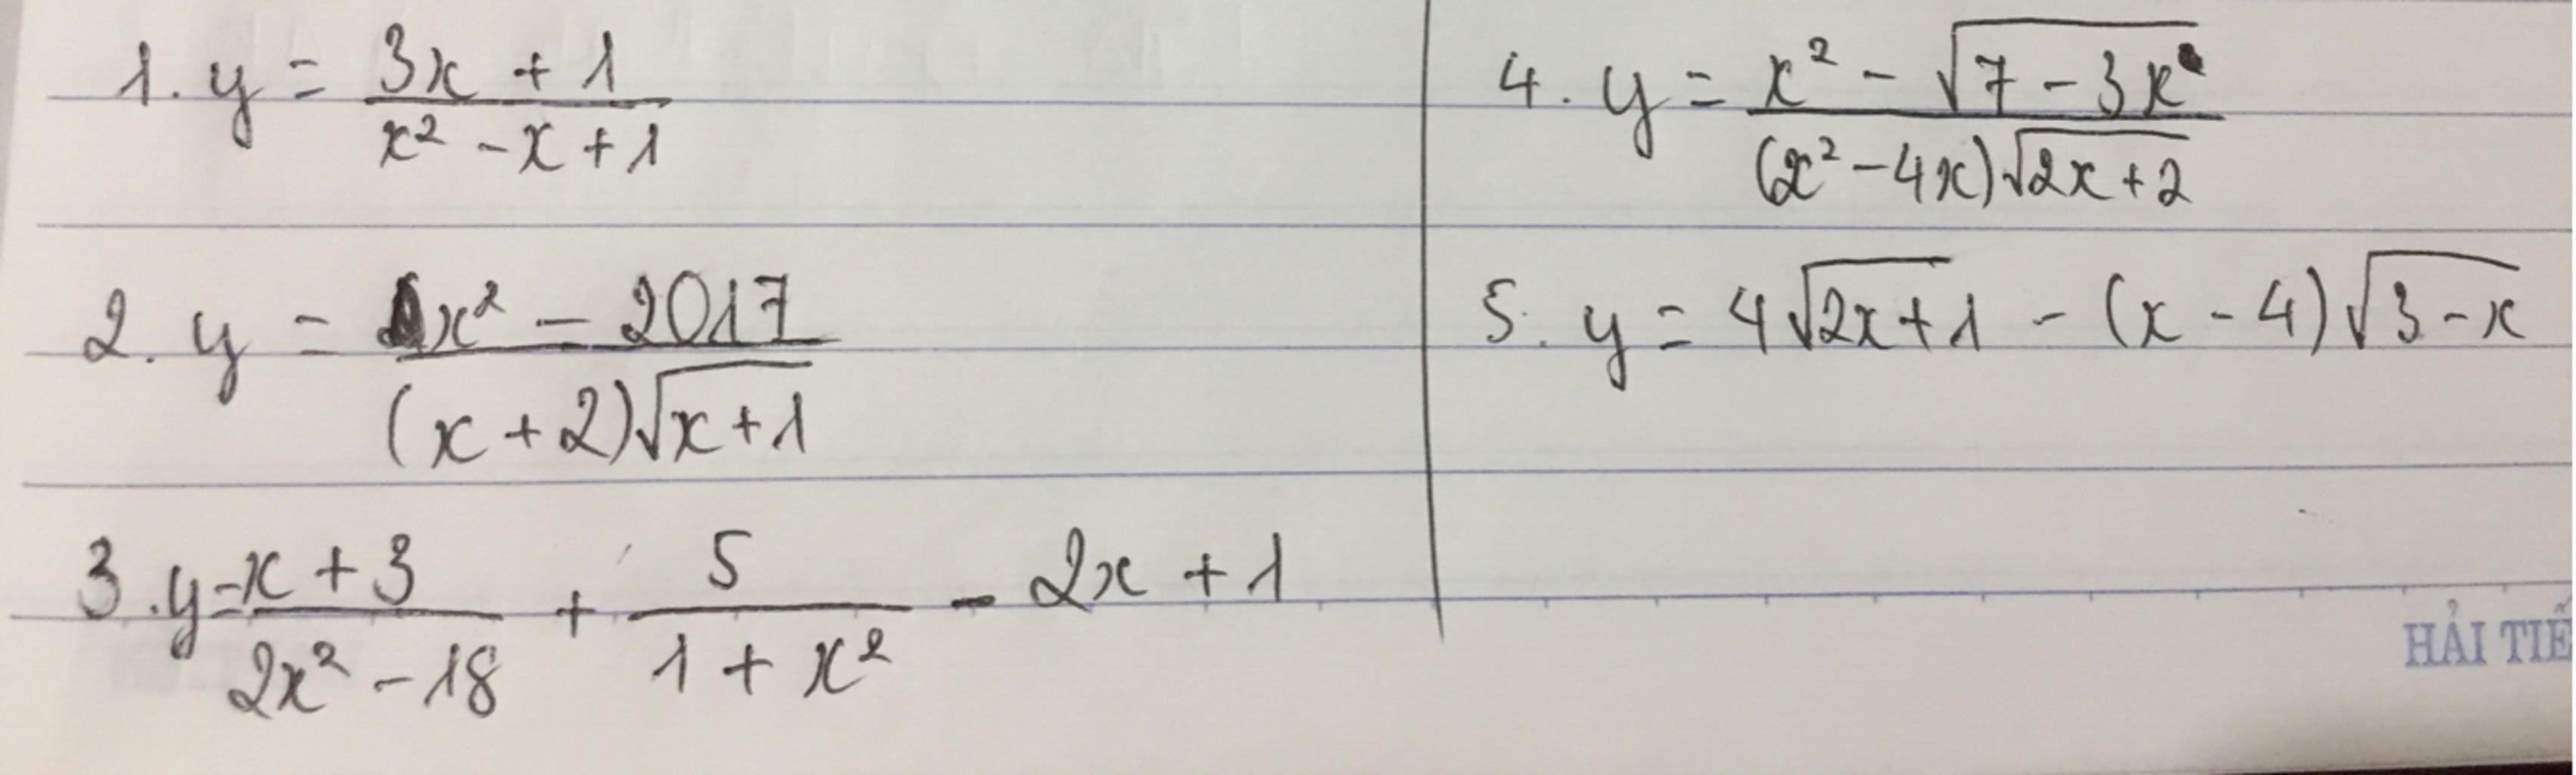 1. y = (3x + 1)/(x² - x + 1)
2. y = (x² - 2017)/((x + 2)√(x + 1))
3. y = (x + 3)/(2x² - 18) + 5/(1 + x²) - 2x + 1
4. y = (x² - √(7 - 3x))/((x² - 4x)√(2x + 2))
5. y = 4√(2x + 1) - (x - 4)√(3 - x)
HẢI TIẾ